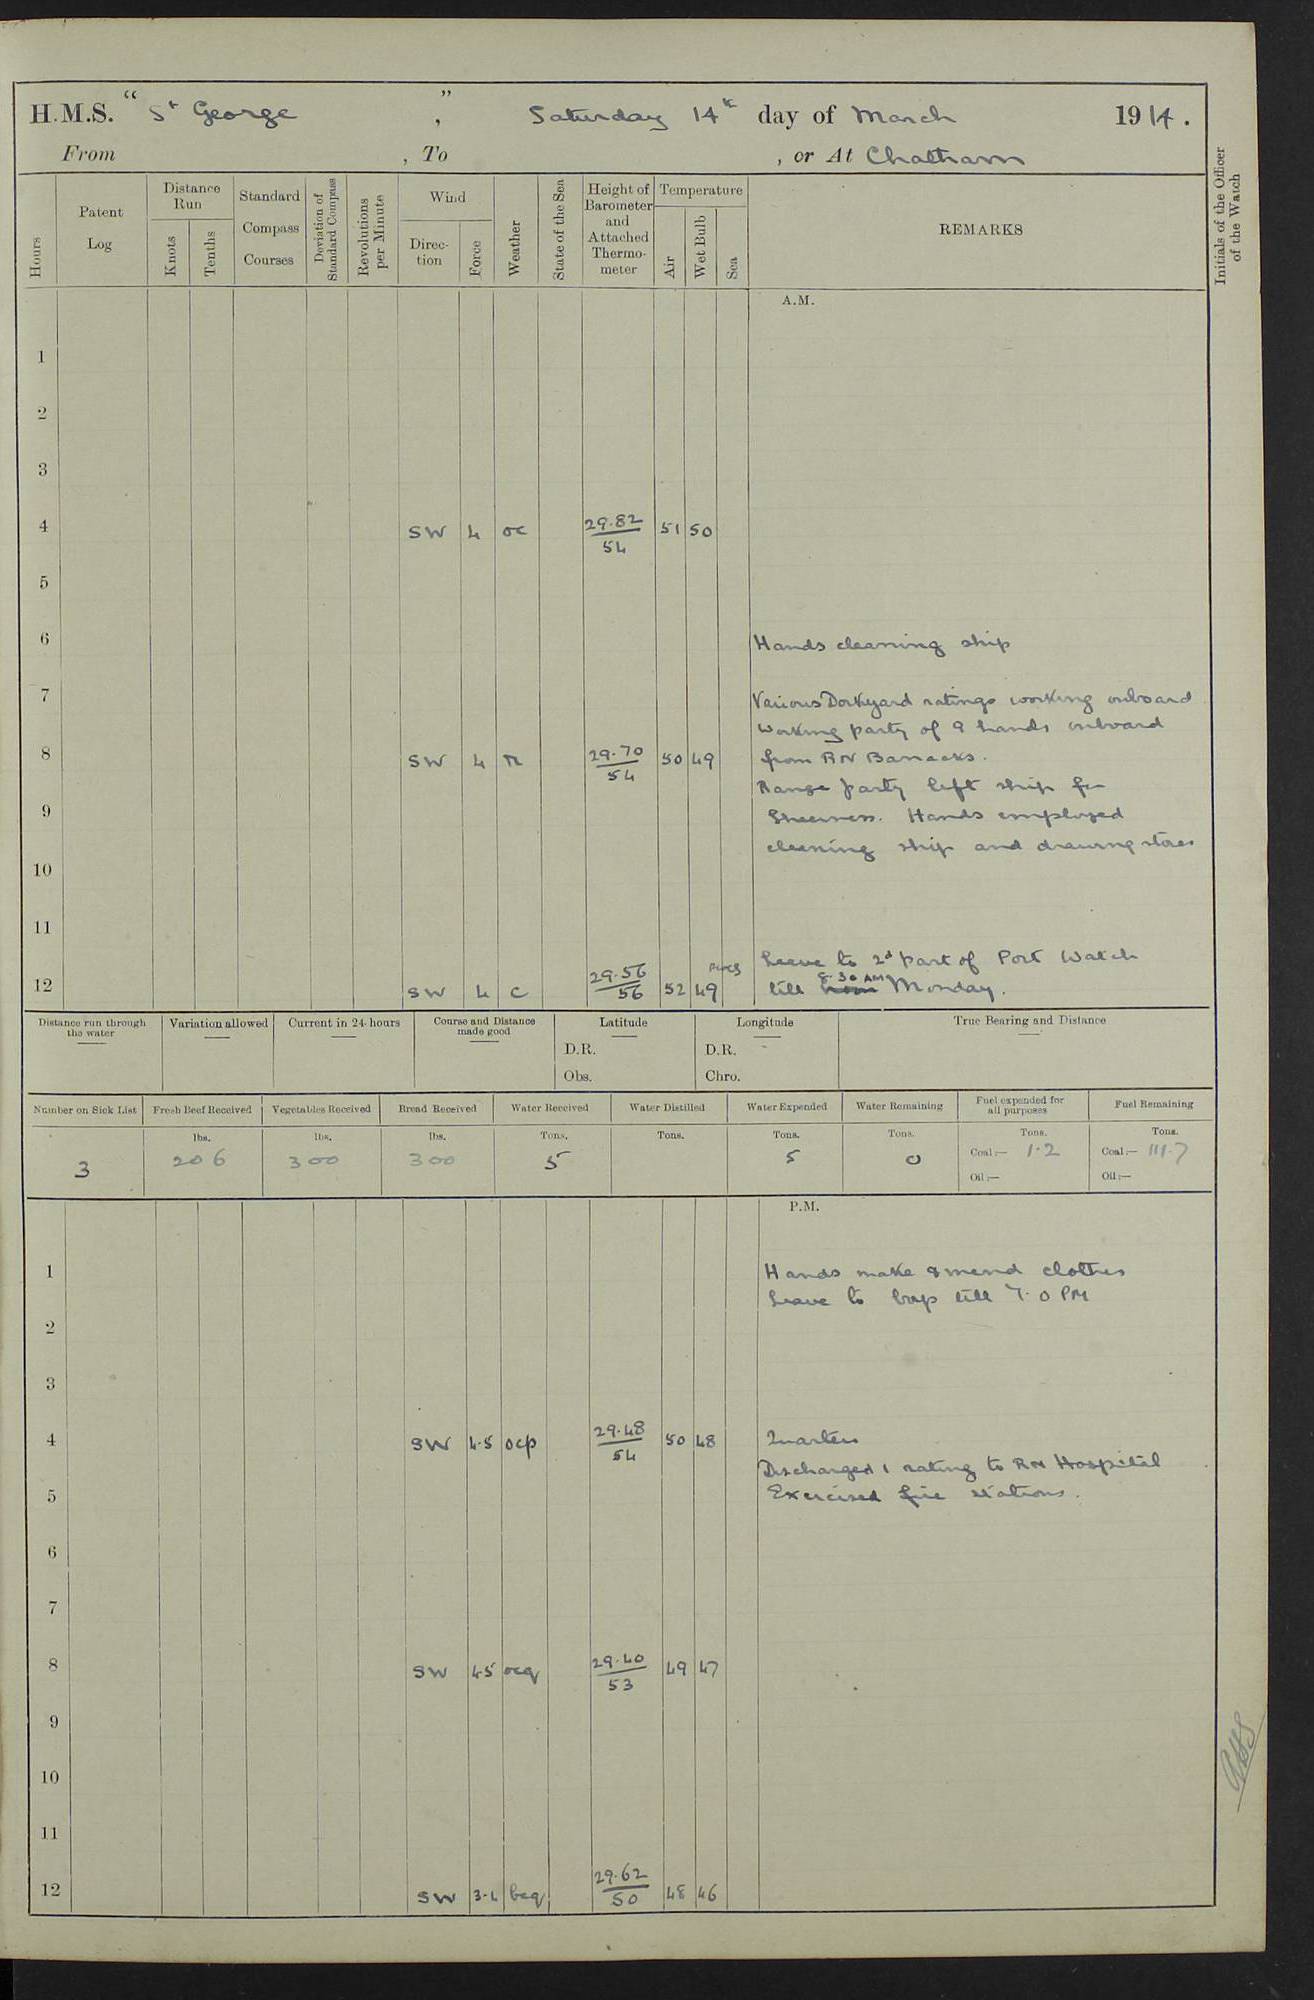 H.M.S. " St George ", Saturday 14th day of March 1914.
From , To , or At Chatham
Hours
Patent Log
Distance Run
Knots
Tenths
Standard Compass Courses
Deviation of Standard Compass
Revolutions per Minute
Wind
Direc-tion
Force
Weather
State of the Sea
Height of Barometer and Attached Thermo-meter
Temperature
Air
Wet Bulb
Sea
REMARKS
Initials of the Officer of the Watch
A.M.
1
2
3
4 SW 4 oc 29.82 / 54 51 50
5
6 Hands cleaning ship
7 Various Dockyard ratings working onboard
Working party of 9 hands onboard
8 SW 4 r 29.70 / 54 50 49 from RN Barracks.
Range party left ship for
9 Sheerness. Hands employed
cleaning ship and drawing stores
10
11
Leave to 2d part of Port Watch
12 SW 4 c 29.56 / 56 52 49 till 8.30 AM Monday.
Distance run through the water
Variation allowed
Current in 24 hours
Course and Distance made good
Latitude
D.R.
Obs.
Longitude
D.R.
Chro.
True Bearing and Distance
Number on Sick List
Fresh Beef Received
Vegetables Received
Bread Received
Water Received
Water Distilled
Water Expended
Water Remaining
Fuel expended for all purposes
Fuel Remaining
lbs. lbs. lbs. Tons. Tons. Tons. Tons. Tons. Tons.
3 206 300 300 5 5 0 Coal:— 1.2 Coal:— 111.7
Oil:— Oil:—
P.M.
1 Hands make & mend clothes
Leave to boys till 7.0 PM
2
3
4 SW 4.5 ocp 29.48 / 54 50 48 Quarters
Discharged 1 rating to RN Hospital
5 Exercised fire stations.
6
7
8 SW 4.5 ocq 29.40 / 53 49 47
9
10
11
12 SW 3.4 bcq 29.62 / 50 48 46